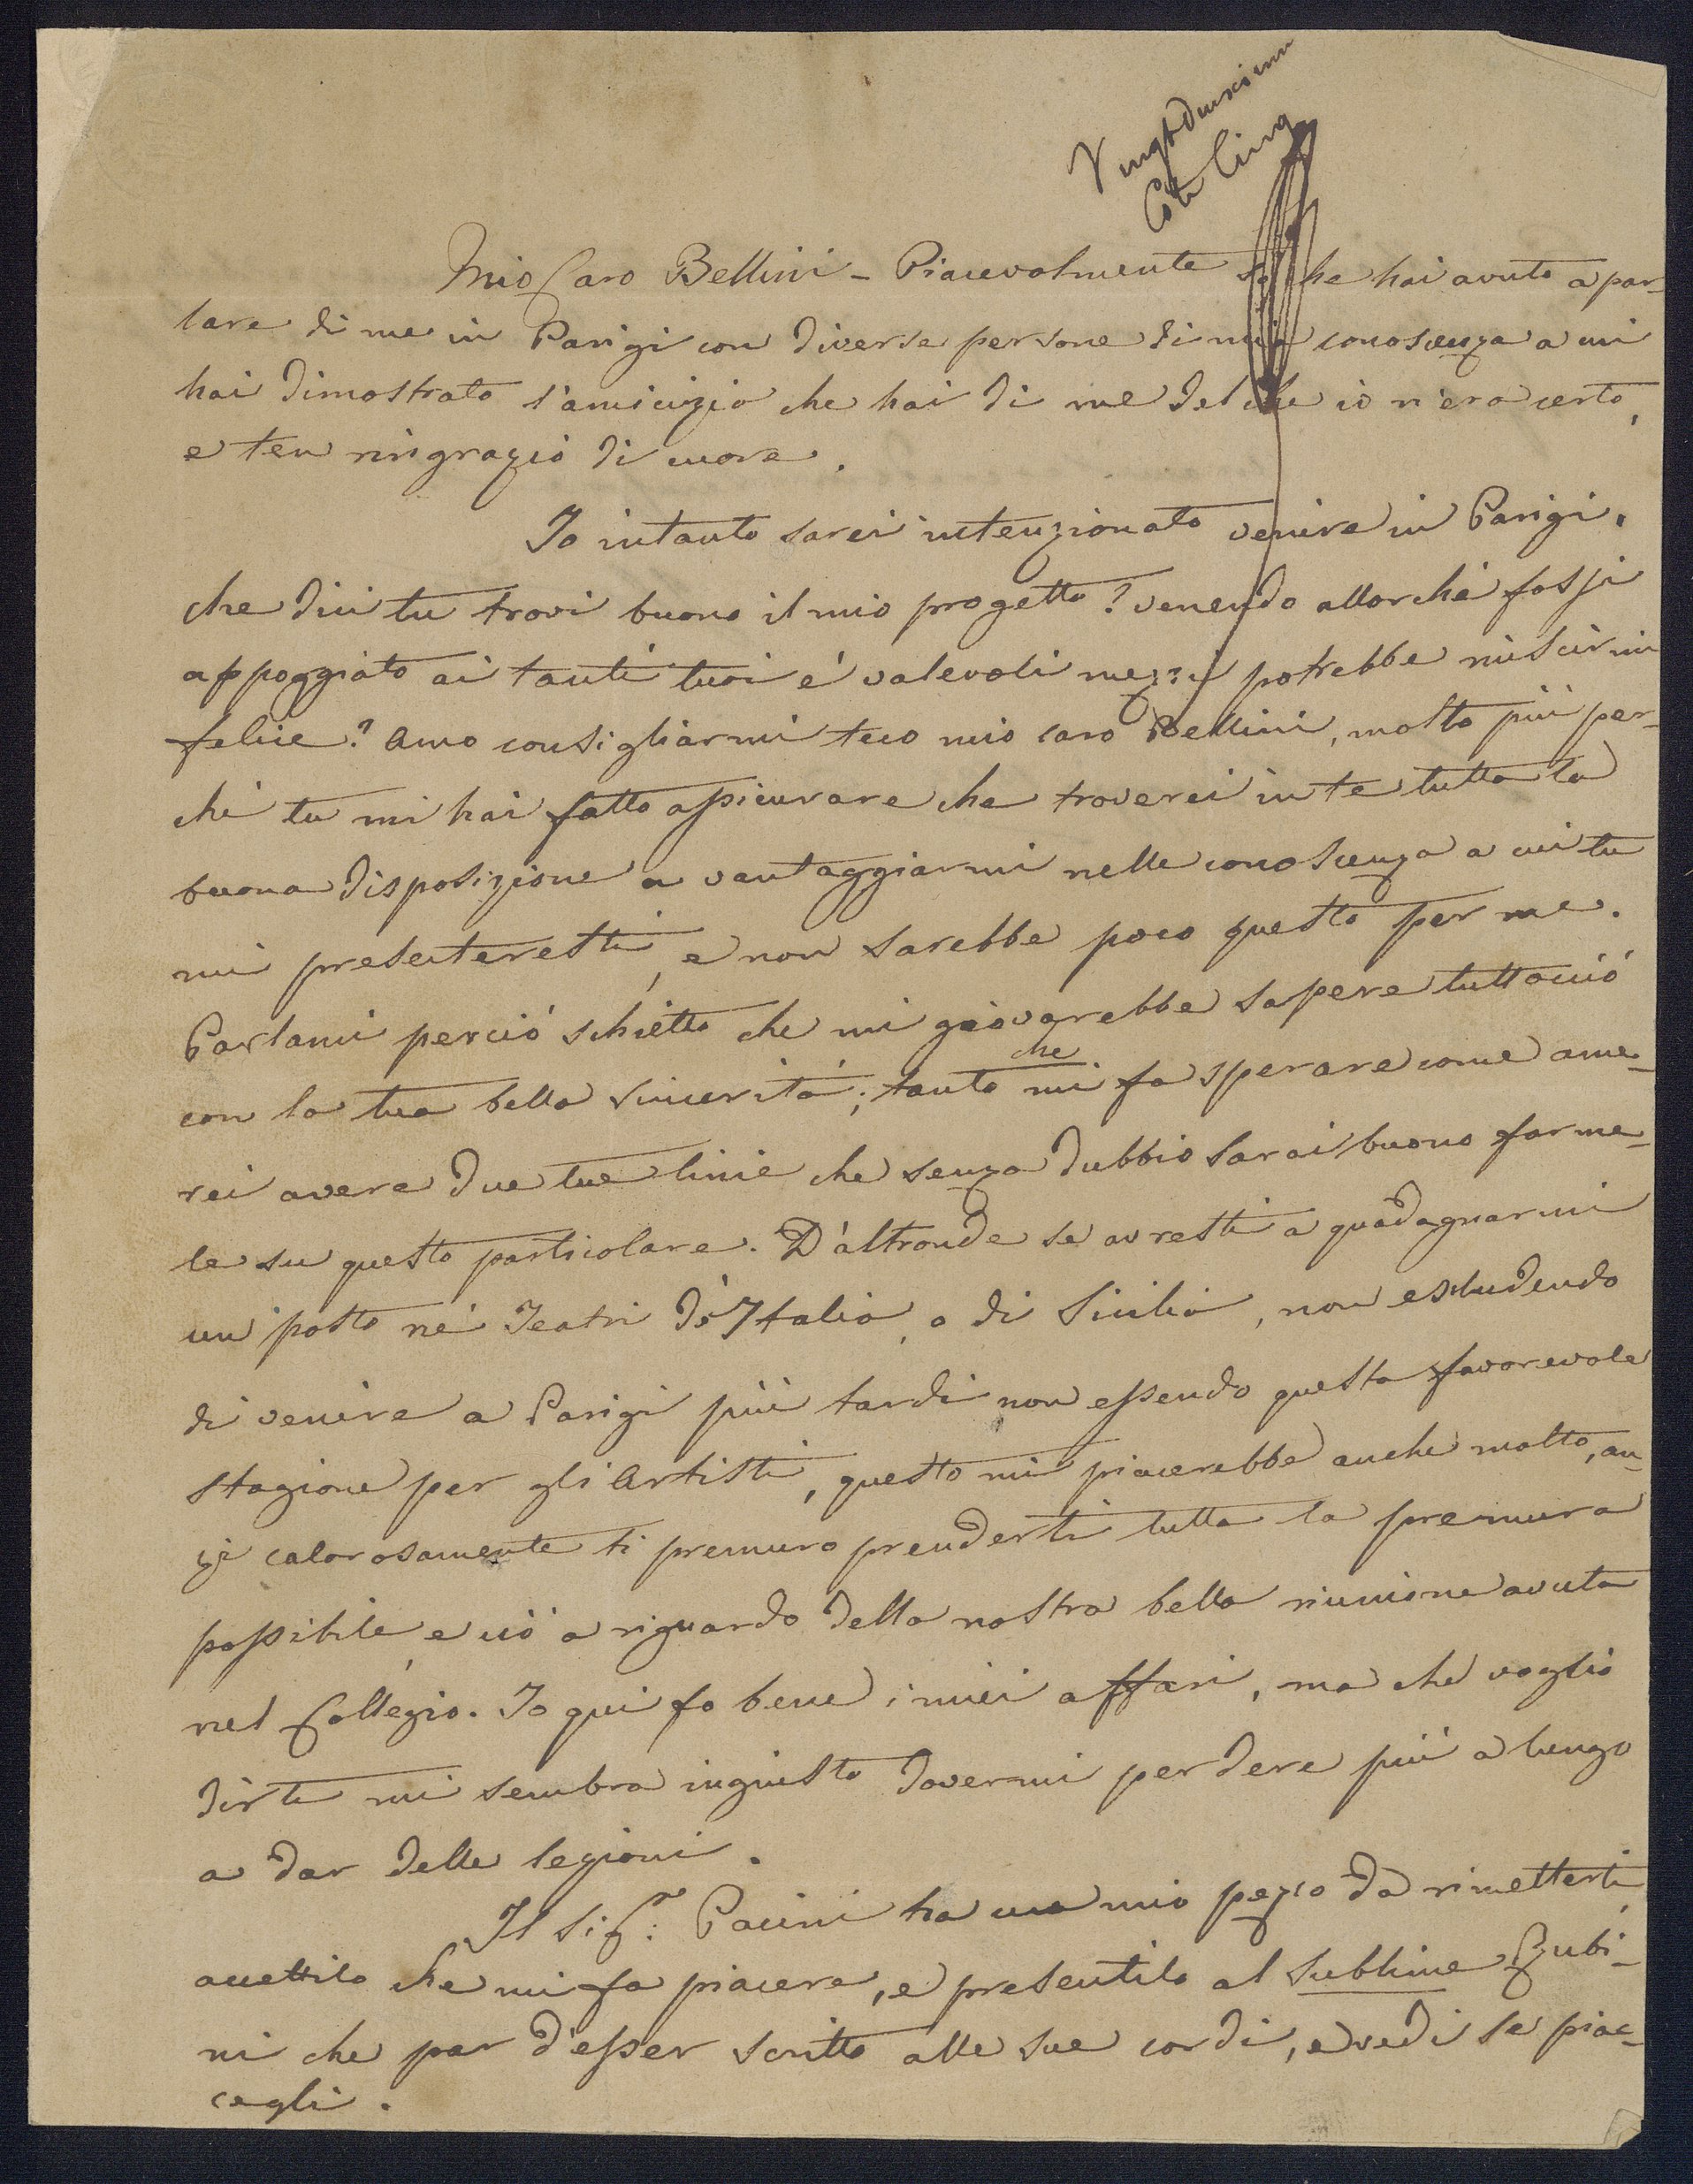 Vingtdeuxieme
Cote Cinq
Mio Caro Bellini - Piacevolmente so che hai avuto a par-
lare di me in Parigi con diverse persone di mia conoscenza a cui
hai dimostrato l'amicizia che hai di me del che io n'era certo,
e ten ringrazio di cuore.
Io intanto sarei intenzionato venire in Parigi,
che dici tu trovi buono il mio progetto? venendo allorché fossi
appoggiato ai tanti tuoi é valevoli mezzi potrebbe riuscirmi
felice? Amo consigliarmi teco mio caro Bellini, molto più per-
ché tu mi hai fatto assicurare che troverei in te tutta la
buona disposizione a vantaggiarmi nelle conoscenza a cui tu
mi presenteresti, e non sarebbe poco questo per me.
Parlami perció schietto che mi giovarebbe sapere tuttociò
con la tua bella sincerità; tanto che mi fa sperare come ame-
rei avere due tue linie che senza dubbio sarai buono farme-
le su questo particolare. D'altronde se avresti a guadagnarmi
un posto né Teatri d'Italia, o di Sicilia, non escludendo
di venire a Parigi più tardi non essendo questa favorevole
stagione per gli Artisti, questo mi piacerebbe anche molto, an-
zi calorosamente ti premuro prenderti tutta la premura
possibile e ció a riguardo della nostra bella riunione avuta
nel Collégio. Io qui fo bene i miei affari, ma che voglio
dirti mi sembra ingiusto dovermi perdere più a lungo
a dar delle lezioni.
Il Sig.r Pacini ha un mio pezzo da rimetterti,
accettilo che mi fa piacere, e presentilo al sublime Rubi-
ni che par d'esser scritto alle sue cordi, e vedi se piac-
cegli.